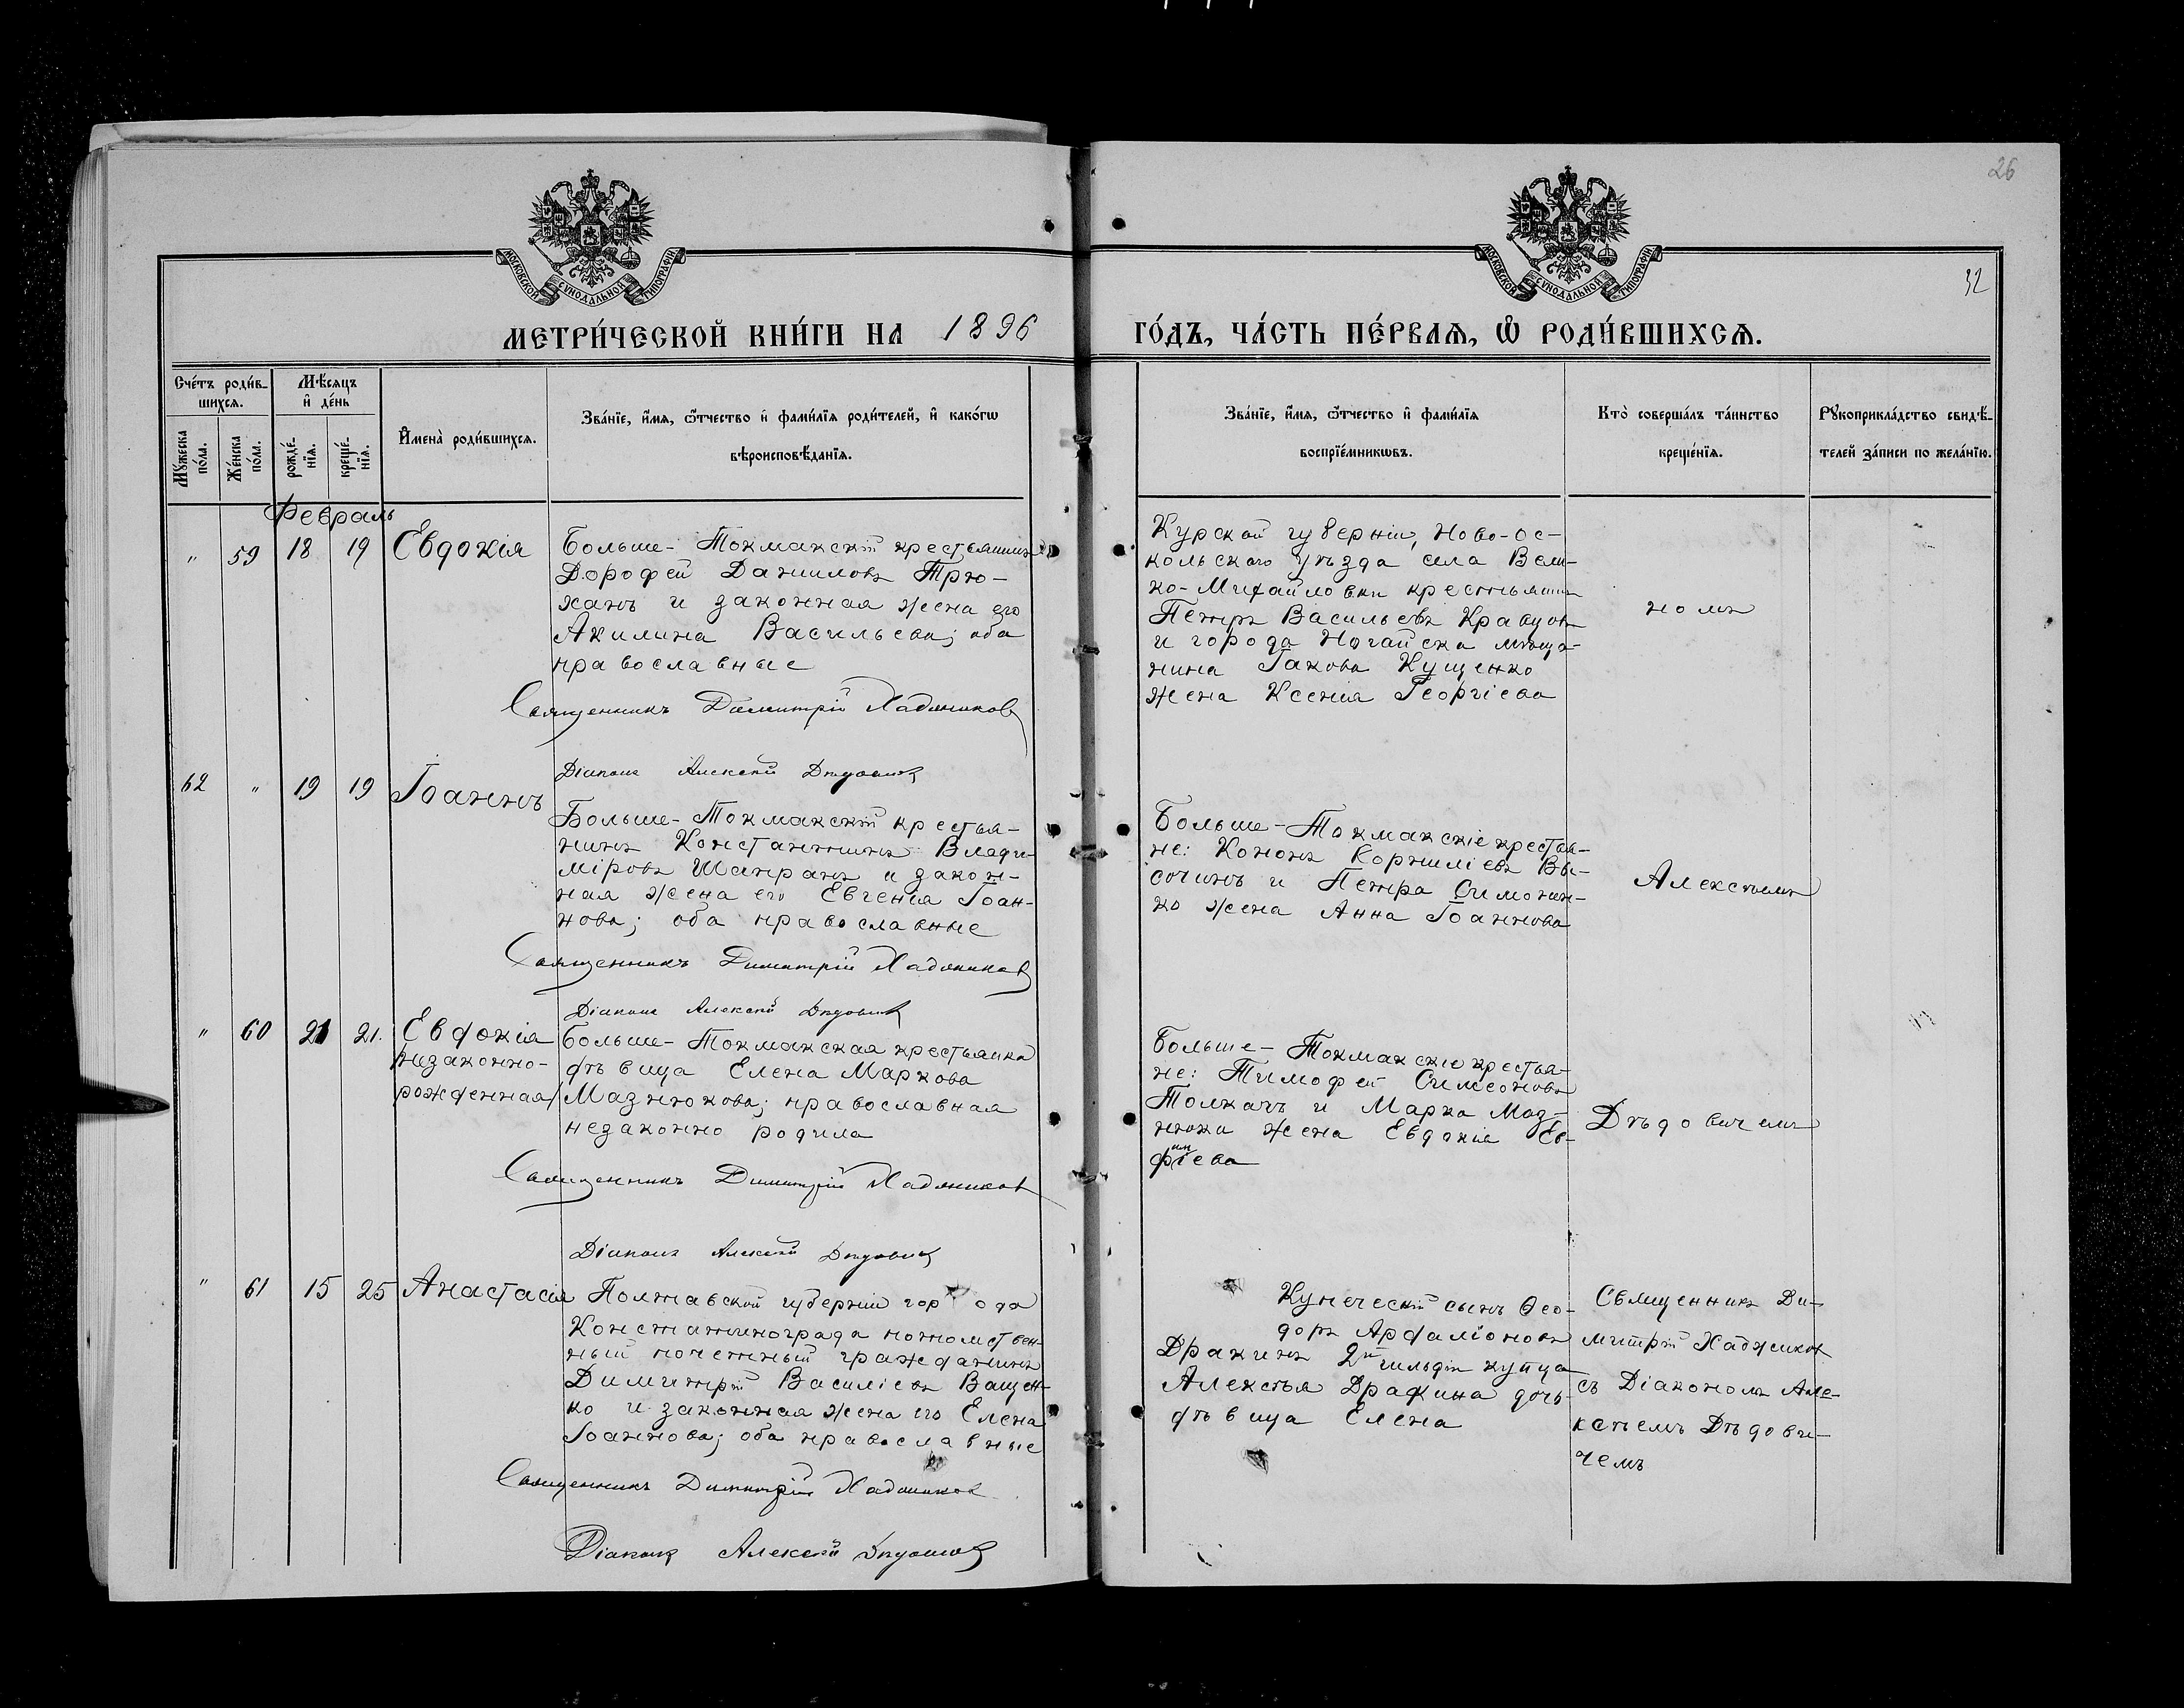 26
МОСКОВСКОЙ СѴНОДАЛЬНОЙ ТИПОГРАФІИ
МОСКОВСКОЙ СѴНОДАЛЬНОЙ ТИПОГРАФІИ
32
МЕТРИ́ЧЕСКОЙ КНИ́ГИ НА 1896
ГО́ДЪ, ЧА́СТЬ ПЕ́РВАѦ, Ѽ РОДИ́ВШИХСѦ.
Сче́тъ роди́в-
шихсѧ.
Мꙋ́жеска
по́ла.
Же́нска
по́ла.
Мѣ́сѧцъ
и҆ де́нь
рожде́-
нїѧ.
креще́-
нїѧ.
И҆мена̀ роди́вшихсѧ.
Зва́нїе, и҆́мѧ, ѻ҆́тчество и҆ фами́лїѧ роди́телей, и҆ како́гѡ
вѣроисповѣ́данїѧ.
Зва́нїе, и҆́мѧ, ѻ҆́тчество и҆ фами́лїѧ
воспрїе́мникѡвъ.
Кто̀ соверша́лъ та́инство
креще́нїѧ.
Рꙋкоприкла́дство свидѣ́-
телей за́писи по жела́нїю.
Февраль
" 59 18 19 Евдокія
Больше-Токмакскій крестьянинъ
Дорофей Даниловъ Трю-
ханъ и законная жена его
Акилина Васильева; оба
православные
Священникъ Димитрій Хаджиновъ
Діаконъ Алексѣй Дѣдовичъ
Курской губерніи, Ново-Ос-
кольскаго уѣзда села Вели-
ко-Михайловки крестьянинъ
Петръ Васильевъ Кравцовъ
и города Ногайска мѣща-
нина Іакова Кущенко
жена Ксенія Георгіева
номъ
62 " 19 19 Іоаннъ
Больше-Токмакскій крестья-
нинъ Константинъ Влади-
міровъ Шапранъ и закон-
ная жена его Евгенія Іоан-
нова; оба православные
Священникъ Димитрій Хаджиновъ
Діаконъ Алексѣй Дѣдовичъ
Больше-Токмакскіе крестья-
не: Кононъ Корниліевъ Вы-
сочинъ и Петра Симонен-
ко жена Анна Іоаннова
Алексѣемъ
" 60 21 21. Евдокія
/незаконно-
рожденная/
Больше-Токмакская крестьянка
дѣвица Елена Маркова
Мазнюкова; православная
незаконно родила
Священникъ Димитрій Хаджиновъ
Діаконъ Алексѣй Дѣдовичъ
Больше-Токмакскіе крестья-
не: Тимофей Симеоновъ
Толкачъ и Марка Маз-
нюка жена Евдокія Ев-
фиміева
Дѣдовичемъ
" 61 15 25 Анастасія
Полтавской губерніи города
Константинограда потомствен-
ный почетный гражданинъ
Димитрій Василіевъ Ващен-
ко и законная жена его Елена
Іоаннова; оба православные
Священникъ Димитрій Хаджиновъ
Діаконъ Алексѣй Дѣдовичъ
Купеческій сынъ Ѳео-
доръ Арфаліоновъ
Дракинъ 2й гильдіи купца
Алексѣя Дракина дочь
дѣвица Елена
Священникъ Ди-
митрій Хаджиновъ
съ Діакономъ Але-
ксѣемъ Дѣдови-
чемъ